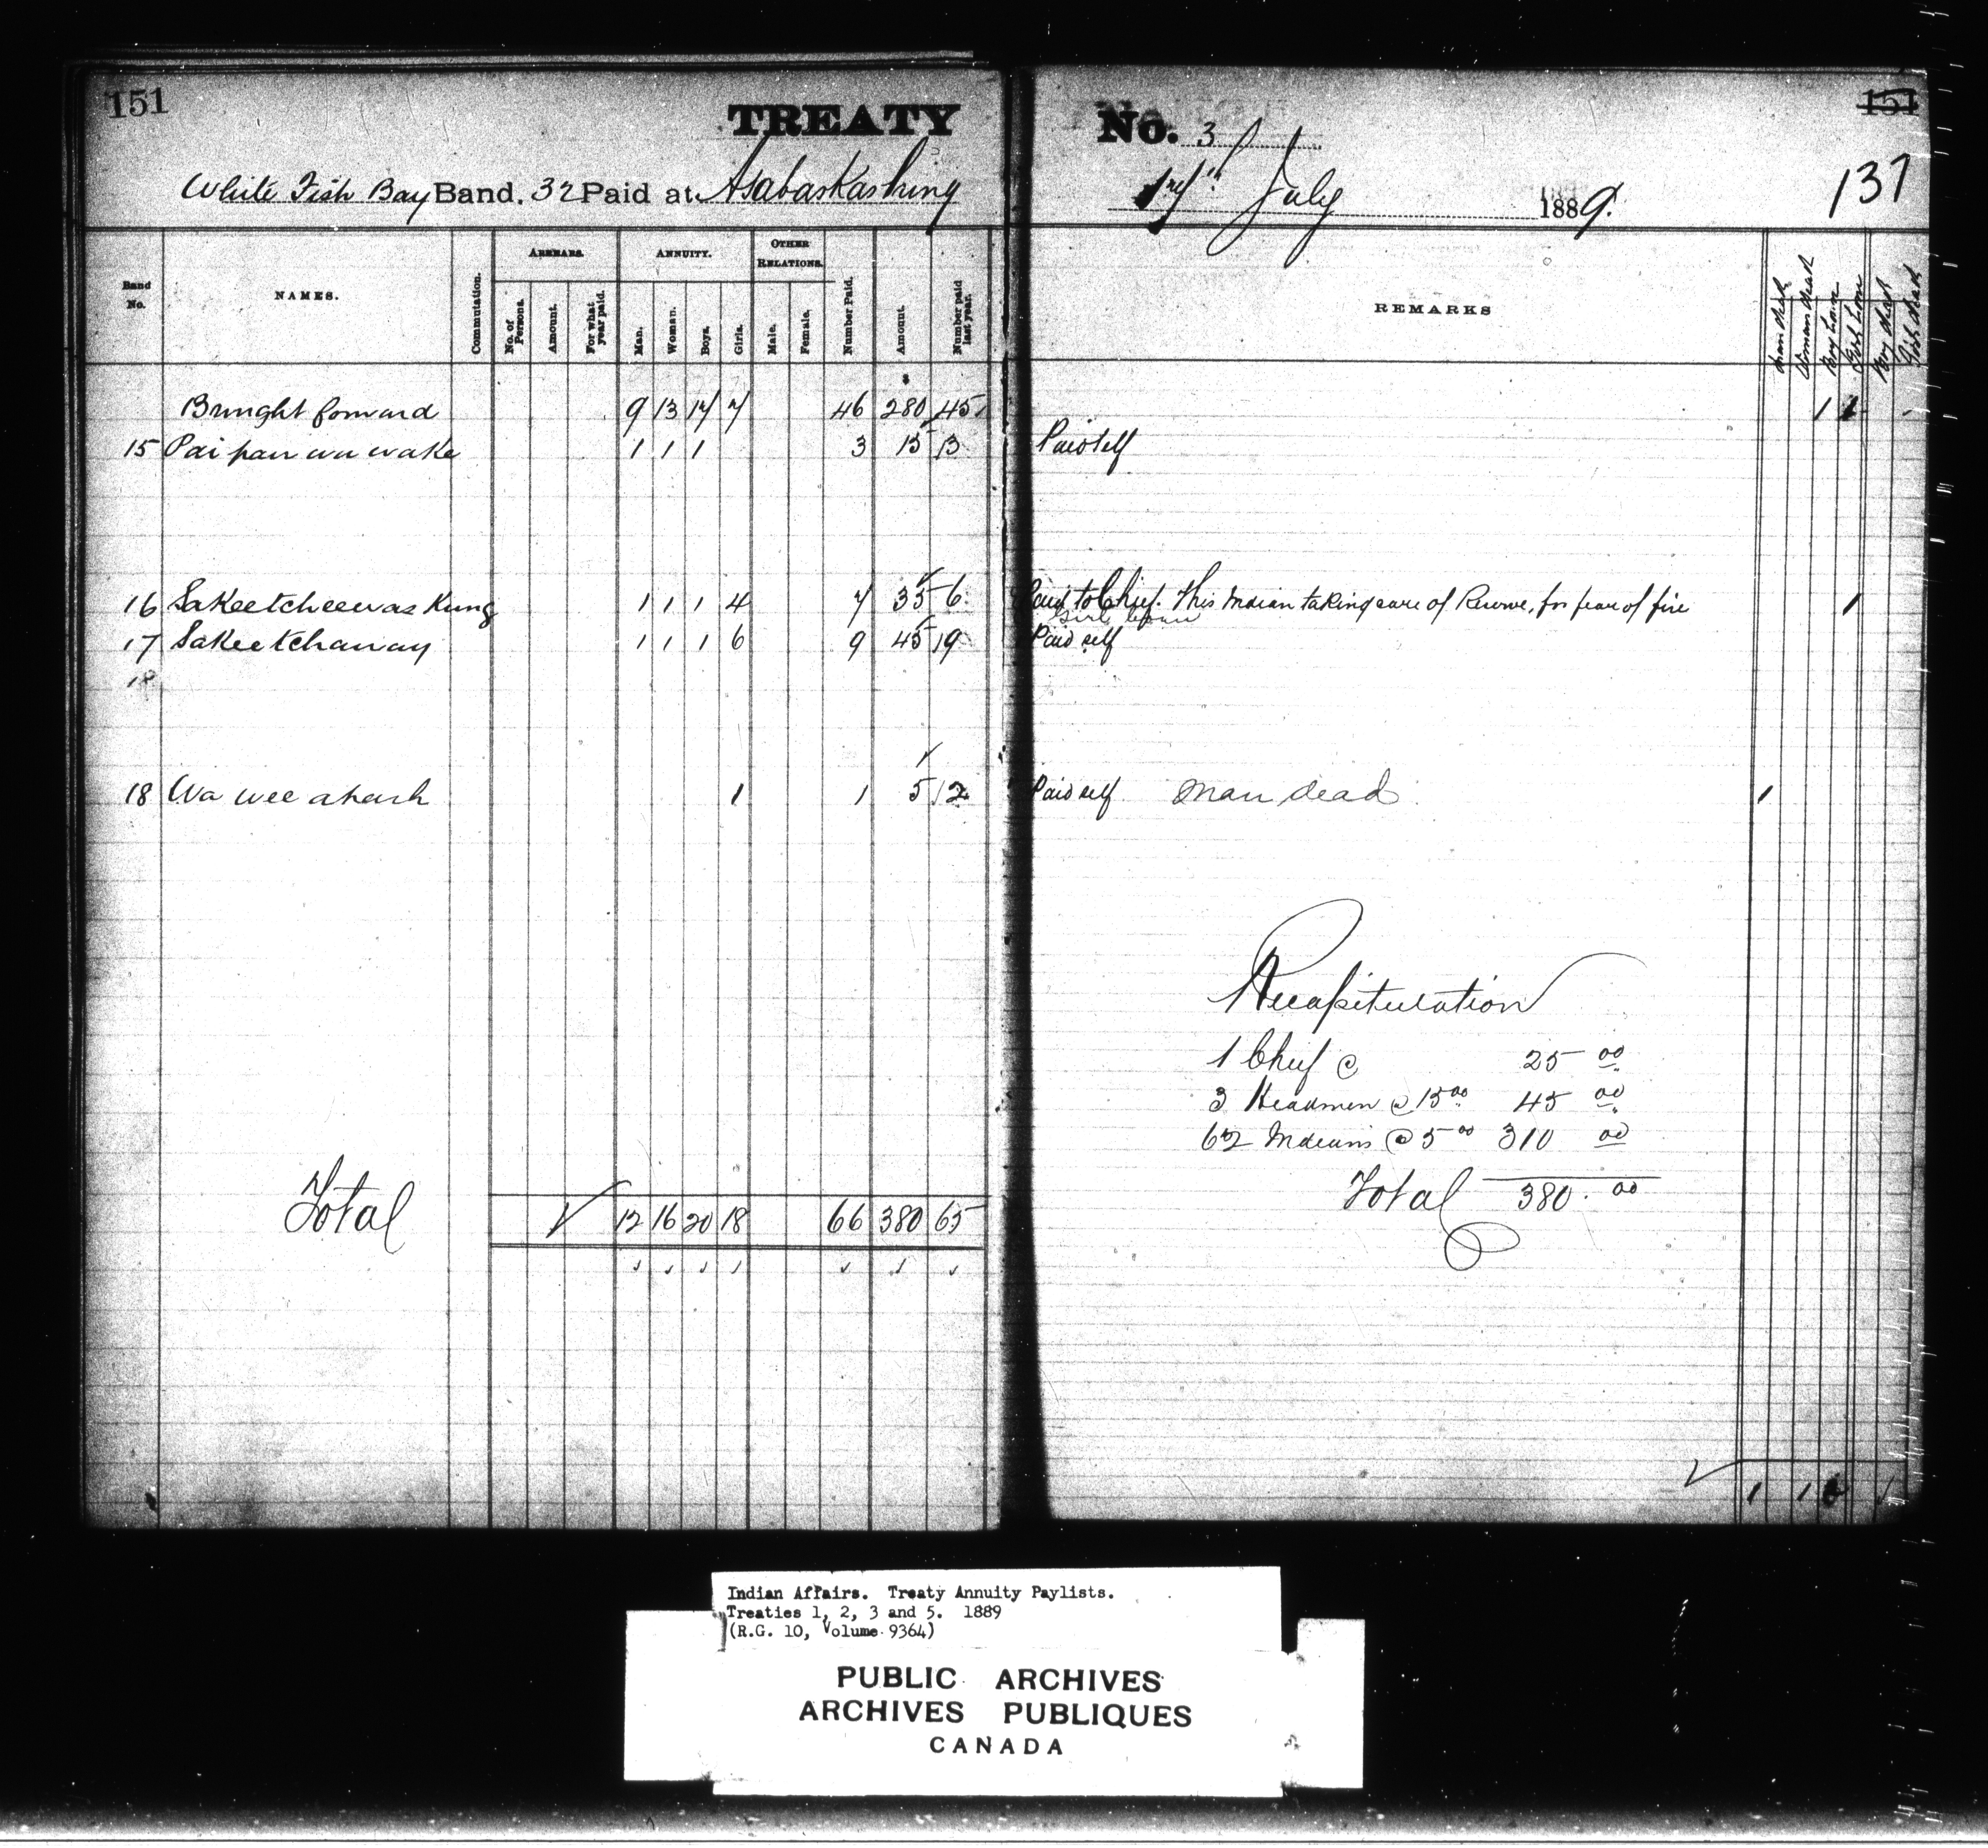 151 TREATY No. 3 151
White Fish Bay Band. 32 Paid at Asabaskashing 17th July 1889. 137
Band No. NAMES. Commutation. ARREARS. No. of Persons. Amount. For what year paid. ANNUITY. Man. Woman. Boys. Girls. OTHER RELATIONS. Male. Female. Number Paid. Amount. Number paid last year. REMARKS Man dead Woman dead Boy born Girl born Boy dead Girl dead
Brought forward 9 13 17 7 46 280 45 1 1
15 Pai pau wa wake 1 1 1 3 15 3 Paid self
16 Sakeetcheewas Kung 1 1 1 4 7 35 6 Paid to Chief. This Indian taking care of Reserve, for fear of fire 1
Girl born
17 Sakeetchaway 1 1 1 6 9 45 9 Paid self
18
18 Wa wee a kash 1 1 5 2 Paid self Man dead 1
Recapitulation
1 Chief @ 25 00
3 Headmen @ 15 00 45 00
62 Indians @ 5 00 310 00
Total 380. 00
Total 12 16 20 18 66 380 65
1 1 1
Indian Affairs. Treaty Annuity Paylists.
Treaties 1, 2, 3 and 5. 1889
(R.G. 10, Volume 9364)
PUBLIC ARCHIVES
ARCHIVES PUBLIQUES
CANADA